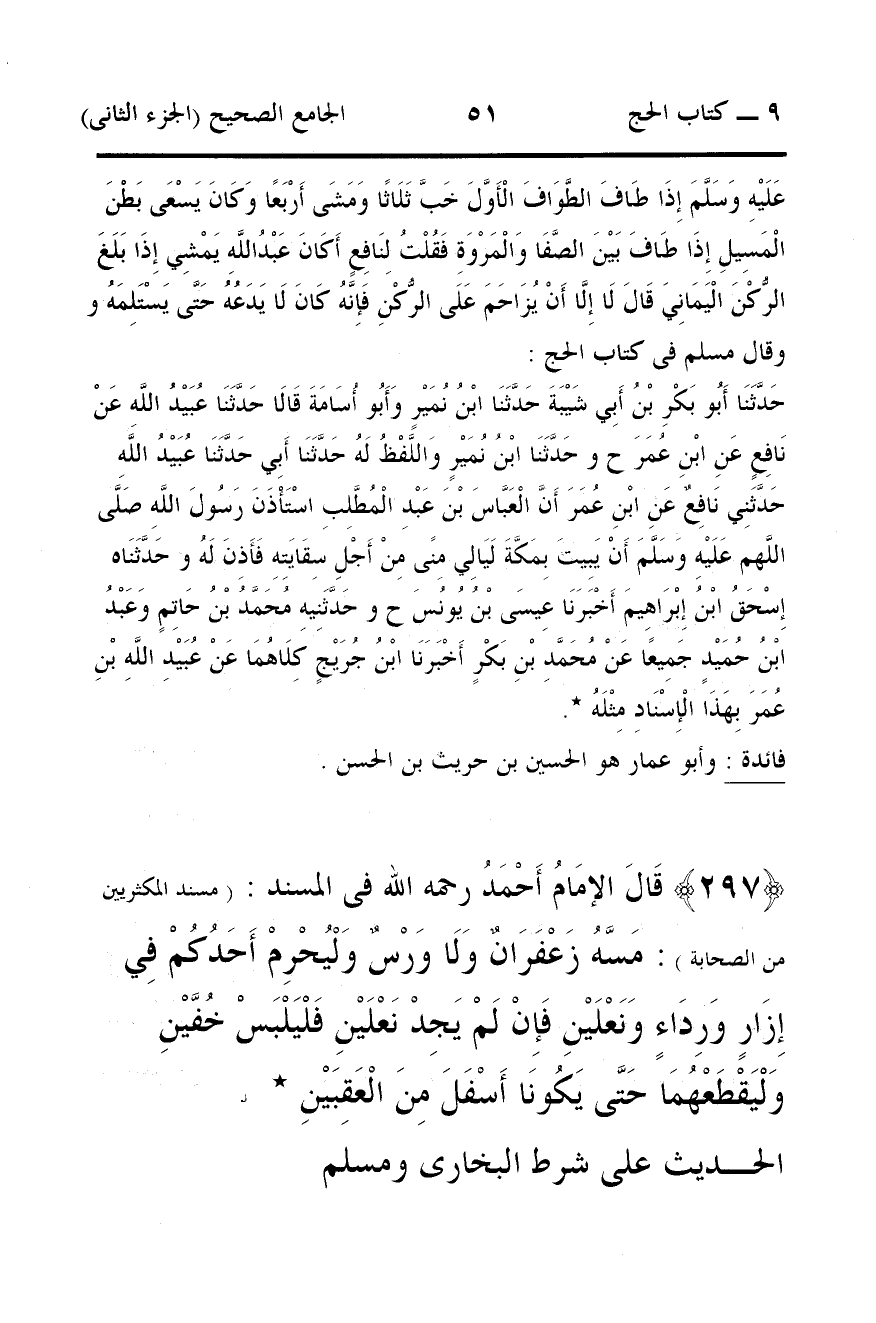 ٩ ـــ كتاب الحج ٥١ الجامع الصحيح (الجزء الثانى)
عَلَيْهِ وَسَلَّمَ إِذَا طَافَ الطَّوَافَ الْأَوَّلَ خَبَّ ثَلَاثًا وَمَشَى أَرْبَعًا وَكَانَ يَسْعَى بَطْنَ
الْمَسِيلِ إِذَا طَافَ بَيْنَ الصَّفَا وَالْمَرْوَةِ فَقُلْتُ لِنَافِعٍ أَكَانَ عَبْدُاللَّهِ يَمْشِي إِذَا بَلَغَ
الرُّكْنَ الْيَمَانِيَ قَالَ لَا إِلَّا أَنْ يُزَاحَمَ عَلَى الرُّكْنِ فَإِنَّهُ كَانَ لَا يَدَعُهُ حَتَّى يَسْتَلِمَهُ و
وقال مسلم فى كتاب الحج :
حَدَّثَنَا أَبُو بَكْرِ بْنُ أَبِي شَيْبَةَ حَدَّثَنَا ابْنُ نُمَيْرٍ وَأَبُو أُسَامَةَ قَالَا حَدَّثَنَا عُبَيْدُ اللَّهِ عَنْ
نَافِعٍ عَنِ ابْنِ عُمَرَ ح و حَدَّثَنَا ابْنُ نُمَيْرٍ وَاللَّفْظُ لَهُ حَدَّثَنَا أَبِي حَدَّثَنَا عُبَيْدُ اللَّهِ
حَدَّثَنِي نَافِعٌ عَنِ ابْنِ عُمَرَ أَنَّ الْعَبَّاسَ بْنَ عَبْدِ الْمُطَّلِبِ اسْتَأْذَنَ رَسُولَ اللَّهِ صَلَّى
اللَّهم عَلَيْهِ وَسَلَّمَ أَنْ يَبِيتَ بِمَكَّةَ لَيَالِي مِنًى مِنْ أَجْلِ سِقَايَتِهِ فَأَذِنَ لَهُ و حَدَّثَنَاه
إِسْحَقُ ابْنُ إِبْرَاهِيمَ أَخْبَرَنَا عِيسَى بْنُ يُونُسَ ح و حَدَّثَنِيهِ مُحَمَّدُ بْنُ حَاتِمٍ وَعَبْدُ
ابْنُ حُمَيْدٍ جَمِيعًا عَنْ مُحَمَّدِ بْنِ بَكْرٍ أَخْبَرَنَا ابْنُ جُرَيْجٍ كِلَاهُمَا عَنْ عُبَيْدِ اللَّهِ بْنِ
عُمَرَ بِهَذَا الْإِسْنَادِ مِثْلَهُ *.
فائدة : وأبو عمار هو الحسين بن حريث بن الحسن .
﴿٢٩٧﴾ قَالَ الإِمَامُ أَحْمَدُ رحمه الله فى المسند : ( مسند المكثريين
من الصحابة ) : مَسَّهُ زَعْفَرَانٌ وَلَا وَرْسٌ وَلْيُحْرِمْ أَحَدُكُمْ فِي
إِزَارٍ وَرِدَاءٍ وَنَعْلَيْنِ فَإِنْ لَمْ يَجِدْ نَعْلَيْنِ فَلْيَلْبَسْ خُفَّيْنِ
وَلْيَقْطَعْهُمَا حَتَّى يَكُونَا أَسْفَلَ مِنَ الْعَقِبَيْنِ *
الحـــديث على شرط البخارى ومسلم